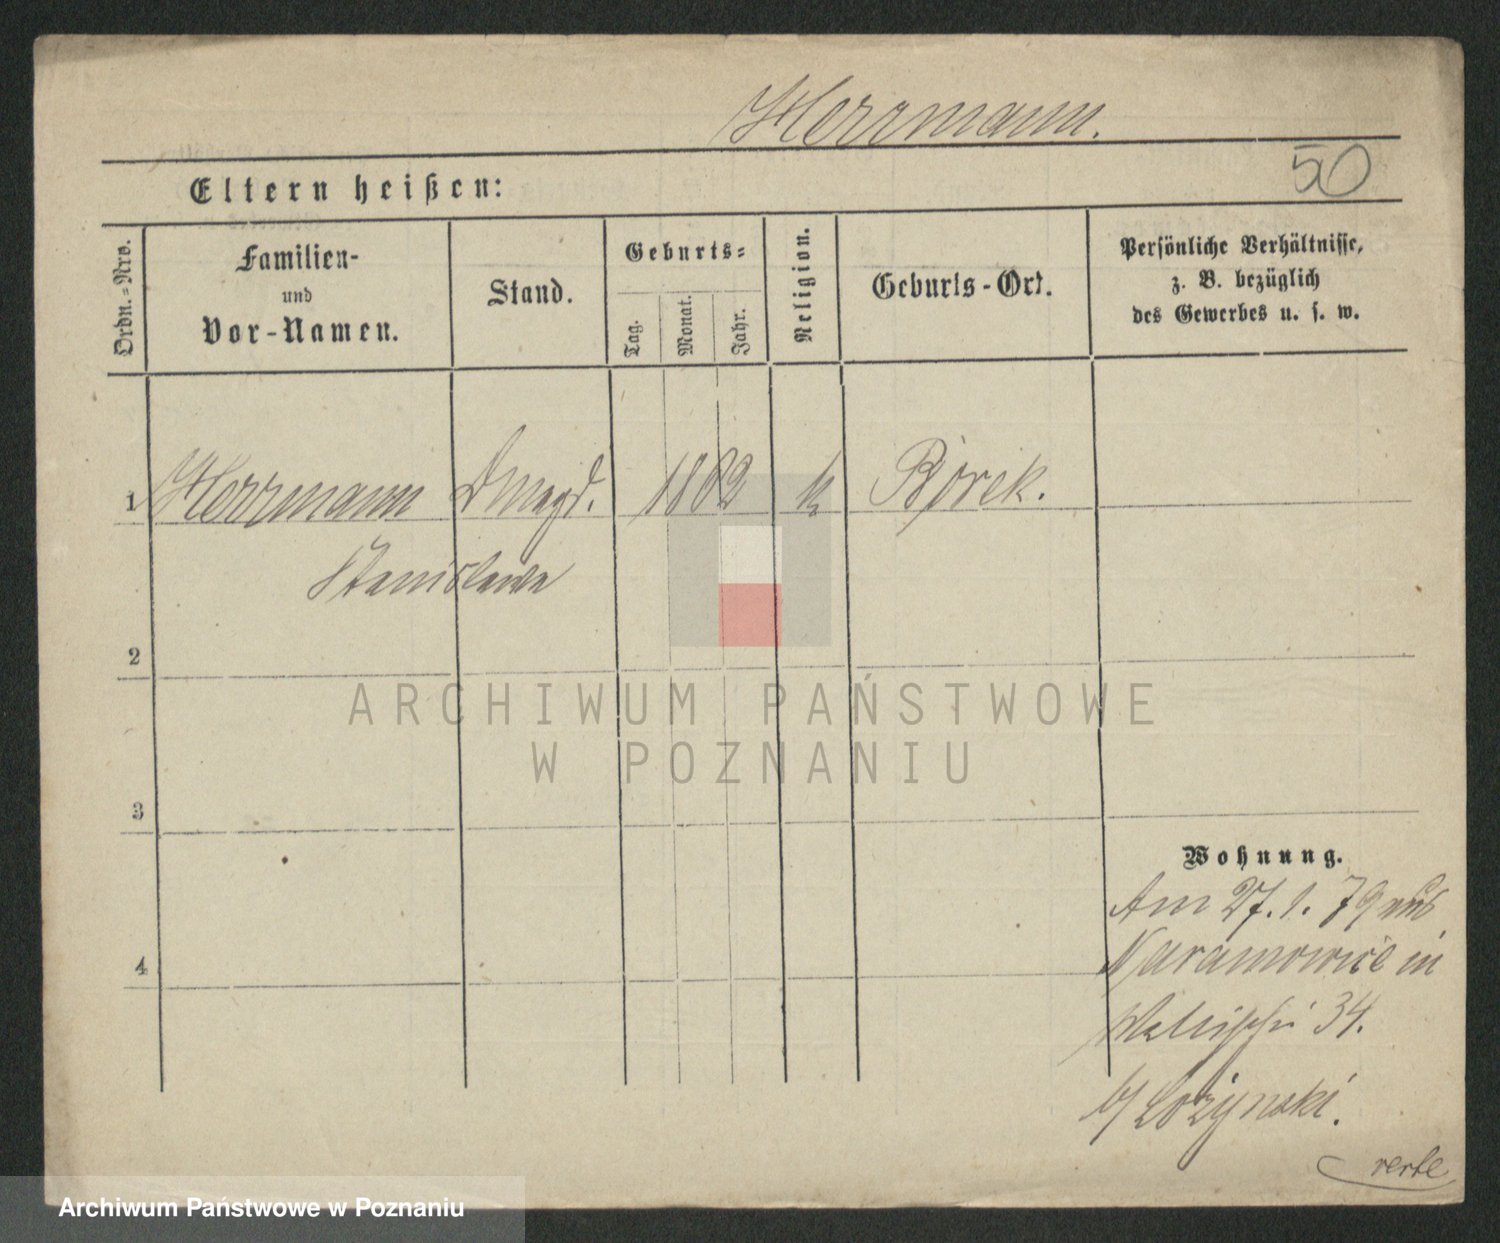 Herrmann.
50
Eltern heißen:
Ordn.-Nro.
Familien-
und
Vor-Namen.
Stand.
Geburts-
Tag.
Monat.
Jahr.
Religion.
Geburts-Ort.
Persönliche Verhältnisse,
z. B. bezüglich
des Gewerbes u. s. w.
1
Herrmann
Dmagd.
k
Borek.
Stanislawa
2
ARCHIWUM PAŃSTWOWE
W POZNANIU
3
Wohnung.
Am 27. 1. 79 aus
Naramowice in
Wallischei 34.
b/ Lożynski.
4
verte
Archiwum Państwowe w Poznaniu